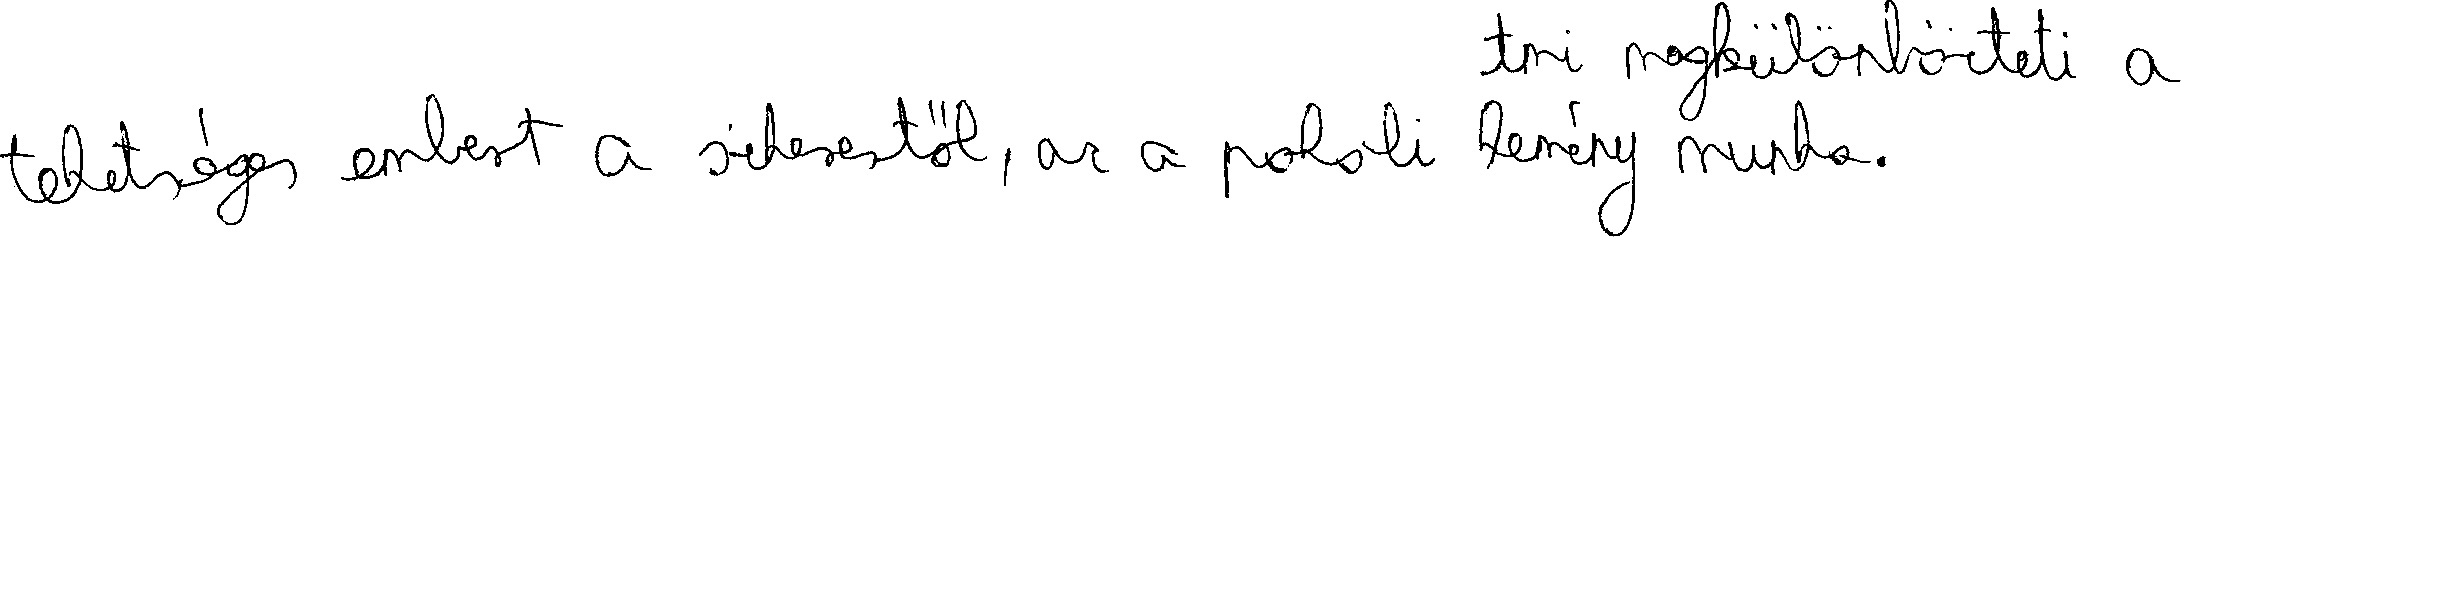 ami megkülönbözteti a
tehetséges embert a sikerestől, az a pokoli kemény munka.